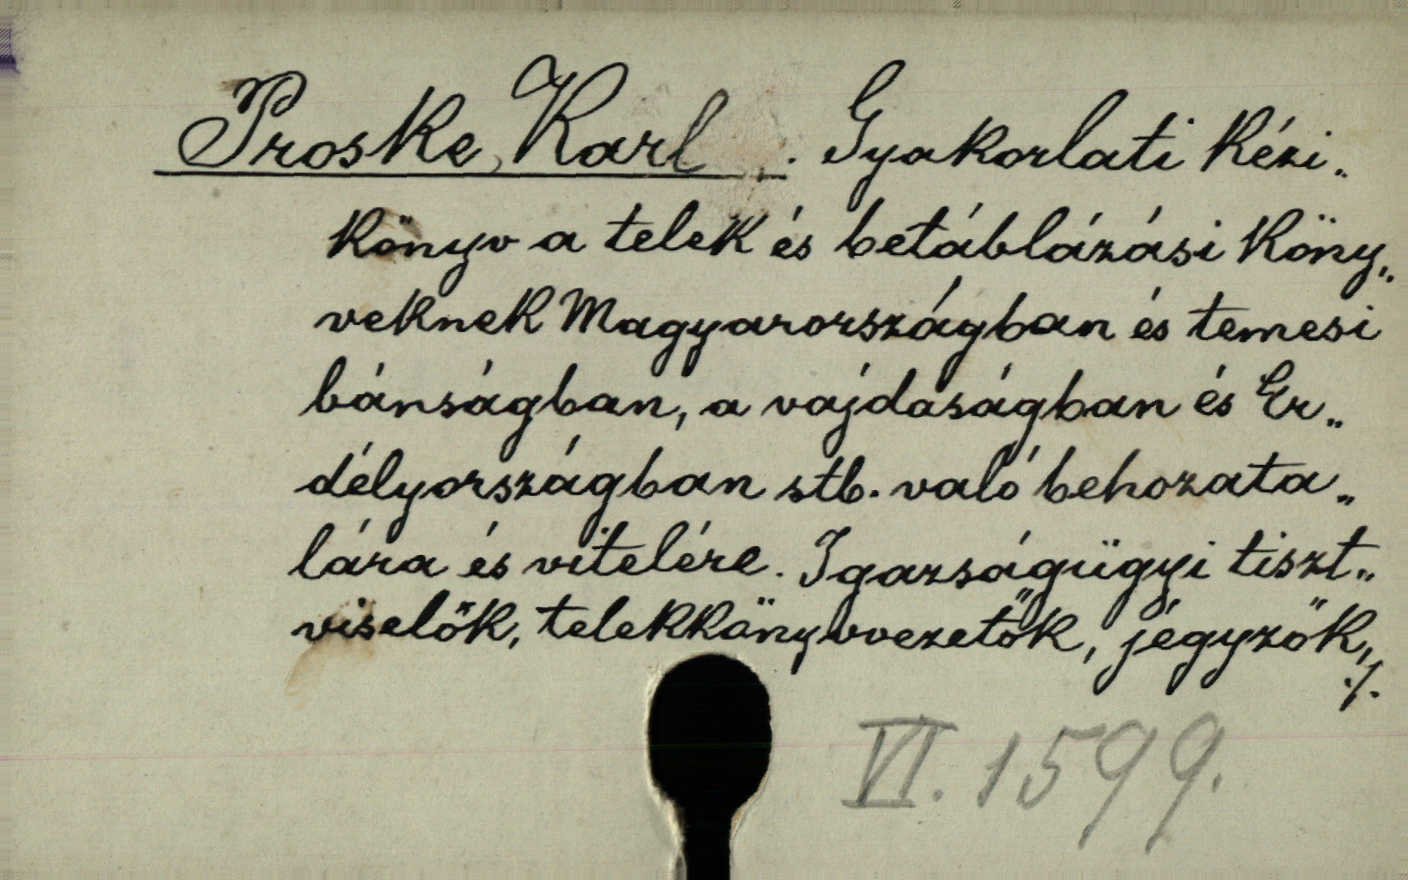 Proske, Karl . Gyakorlati kézi„
könyv a telek és betáblázási köny„
veknek Magyarországban és temesi
bánságban, a vajdaságban és Er„
délyországban stb. való behozata„
lára és vitelére. Igazságügyi tiszt„
viselők, telekkönyvvezetők, jégyzők,
./.
VI. 1599.